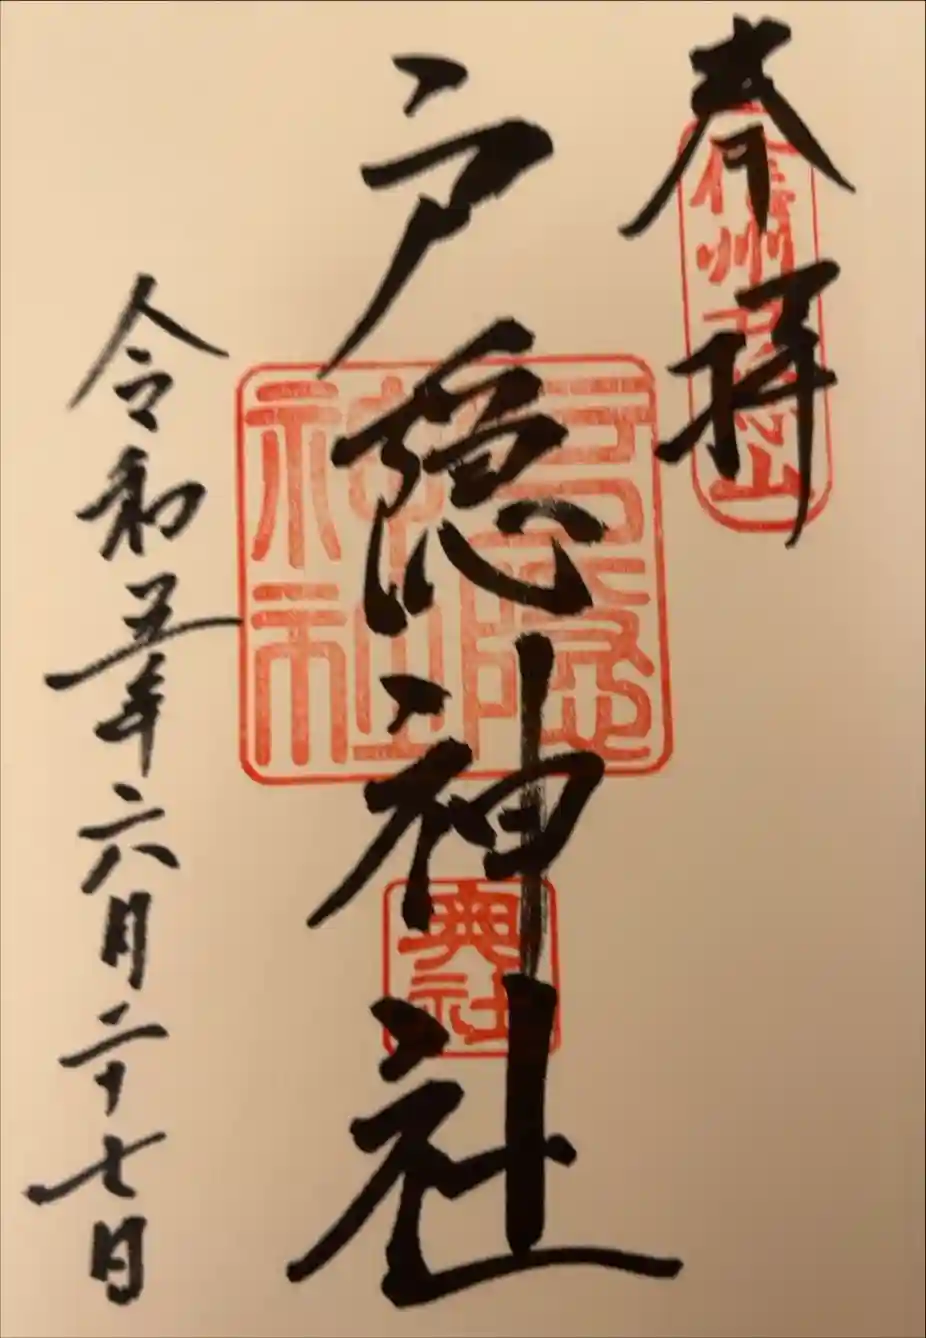 奉拝
信州戸隠山
戸隠神社
戸隠神社
奥社
令和五年六月二十七日